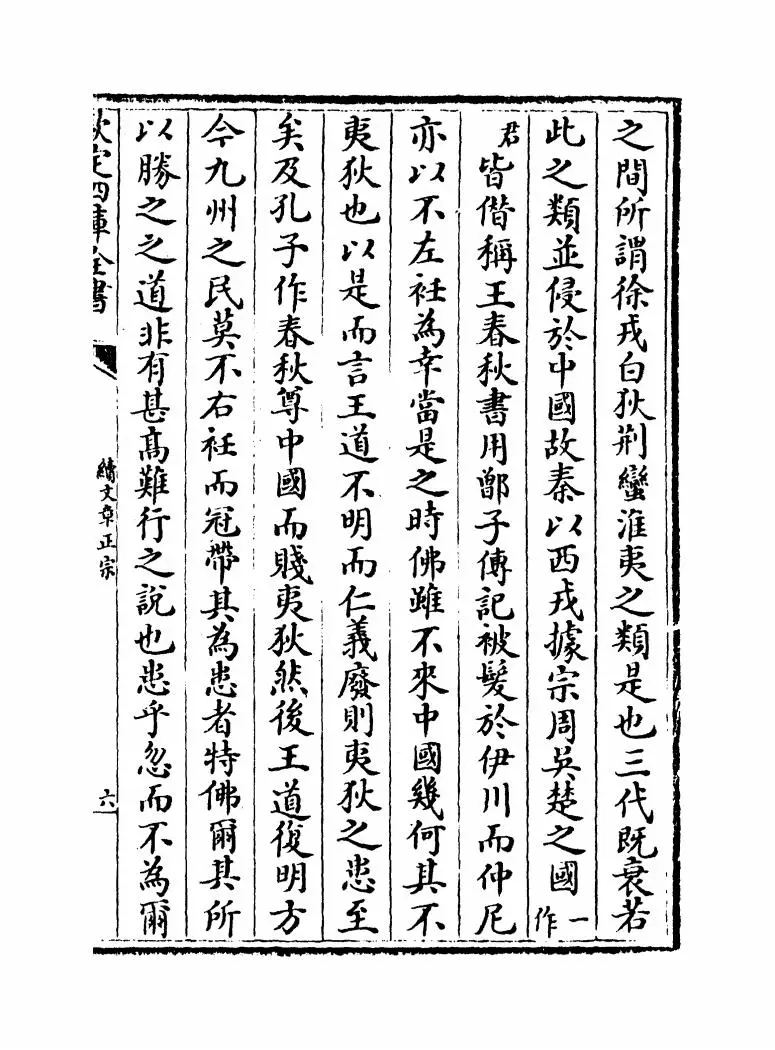 之間所謂徐戎白狄荆蠻淮夷之類是也三代既衰若
此之類並侵於中國故秦以西戎據宗周吳楚之國一作
君皆僭稱王春秋書用鄫子傳記被髮於伊川而仲尼
亦以不左衽為幸當是之時佛雖不來中國幾何其不
夷狄也以是而言王道不明而仁義廢則夷狄之患至
矣及孔子作春秋尊中國而賤夷狄然後王道復明方
今九州之民莫不右衽而冠帶其為患者特佛爾其所
以勝之之道非有甚高難行之說也患乎忽而不為爾
欽定四庫全書
續文章正宗
六